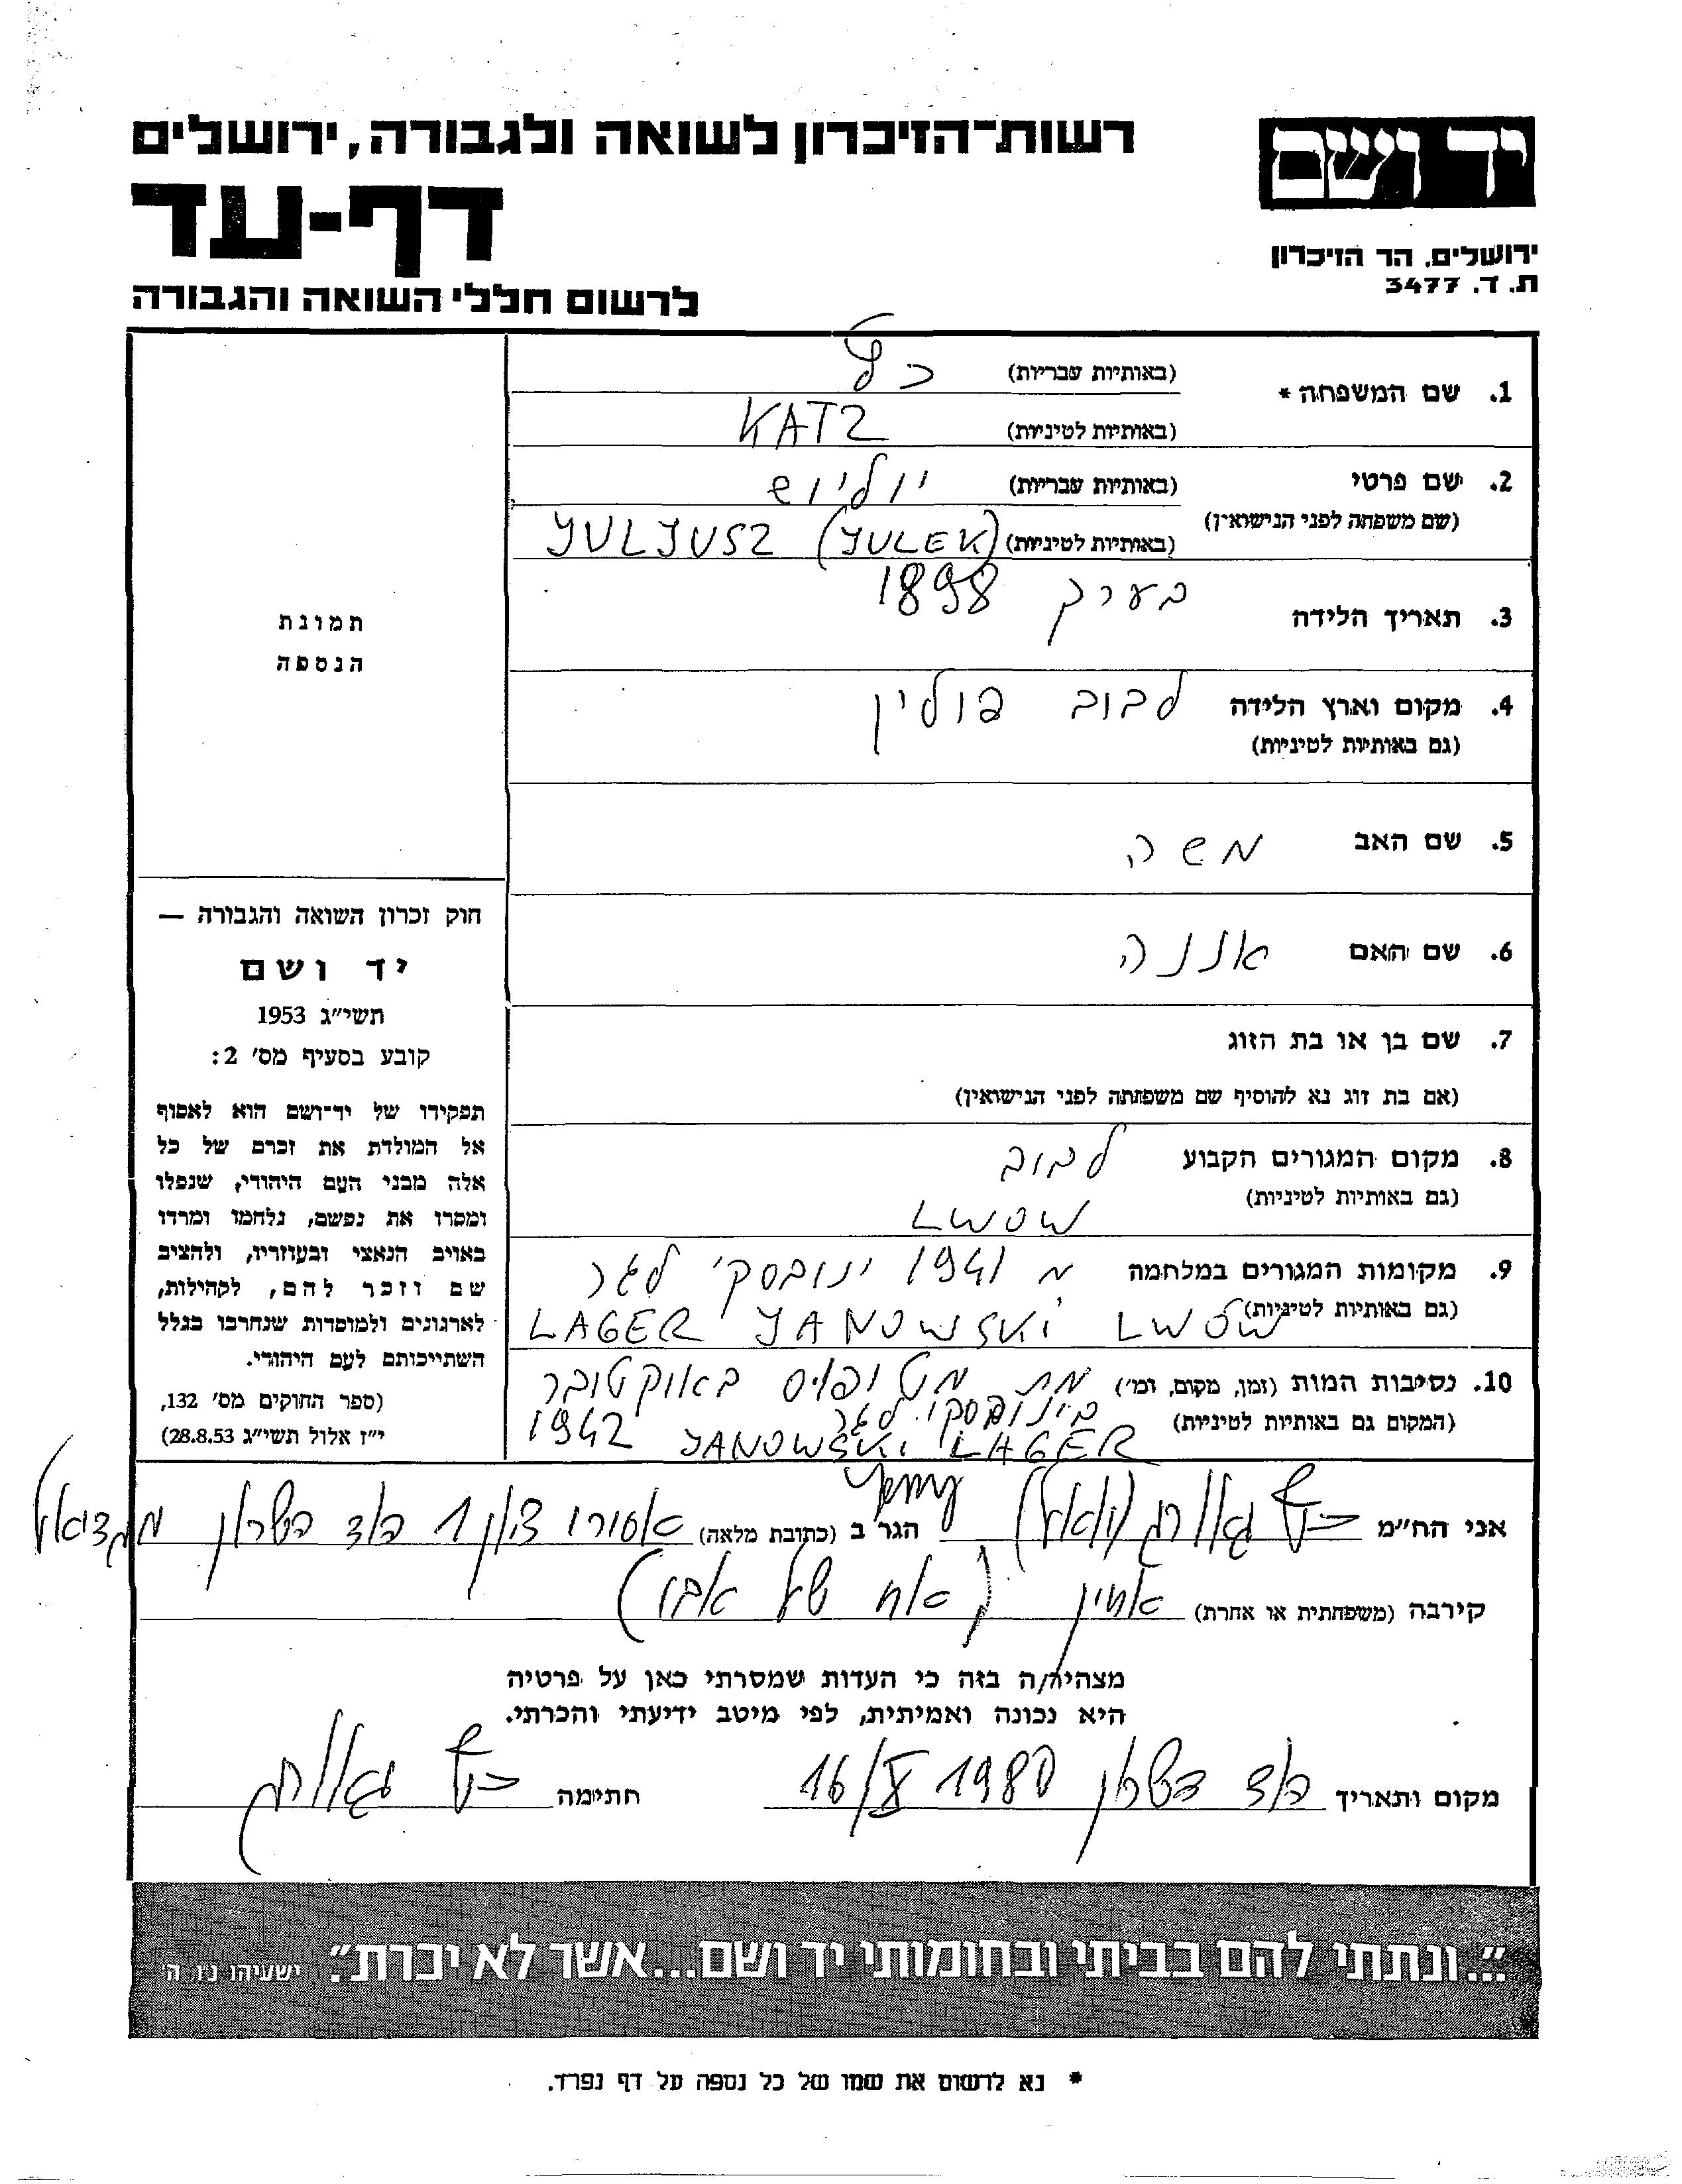 רשות-הזיכרון לשואה ולגבורה, ירושלים
יד ושם
דף-עד
ירושלים, הר הזיכרון
ת. ד. 3477
לרשום חללי השואה והגבורה
1. שם המשפחה * (באותיות עבריות) כץ
(באותיות לטיניות) KATZ
2. שם פרטי (באותיות עבריות) יוליוש
(שם משפחה לפני הנישואין)
(באותיות לטיניות) JULJUSZ (JULEK)
3. תאריך הלידה בערך 1898
4. מקום וארץ הלידה לבוב פולין
(גם באותיות לטיניות)
5. שם האב משה
6. שם האם אננה
7. שם בן או בת הזוג
(אם בת זוג נא להוסיף שם משפחתה לפני הנישואין)
8. מקום המגורים הקבוע לבוב
(גם באותיות לטיניות) LWOW
9. מקומות המגורים במלחמה מ 1941 ינובסקי לגר
(גם באותיות לטיניות) LAGER JANOWSKI LWÓW
10. נסיבות המות (זמן, מקום, וכו') מת מטיפוס באוקטובר
בינובסקי לגר
(המקום גם באותיות לטיניות) 1942 JANOWSKI LAGER
תמונת
הנספה
חוק זכרון השואה והגבורה —
יד ושם
תשי"ג 1953
קובע בסעיף מס' 2:
תפקידו של יד-ושם הוא לאסוף
אל המולדת את זכרם של כל
אלה מבני העם היהודי, שנפלו
ומסרו את נפשם, נלחמו ומרדו
באויב הנאצי ובעוזריו, ולהציב
שם וזכר להם, לקהילות,
לארגונים ולמוסדות שנחרבו בגלל
השתייכותם לעם היהודי.
(ספר החוקים מס' 132,
י"ז אלול תשי"ג 28.8.53)
אני הח"מ כץ הגר ב (כתובת מלאה) אסורו ציון 1 הוד השרון
קירבה (משפחתית או אחרת) אחיין (אח של אבו)
מצהיר/ה בזה כי העדות שמסרתי כאן על פרטיה
היא נכונה ואמיתית, לפי מיטב ידיעתי והכרתי.
מקום ותאריך הוד השרון 16/X 1980 חתימה כץ
"...ונתתי להם בביתי ובחומותי יד ושם...אשר לא יכרת". ישעיהו נ"ו, ה'
* נא לרשום את שמו של כל נספה על דף נפרד.